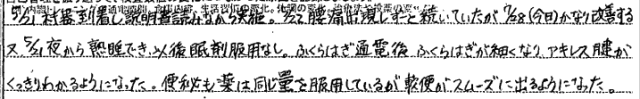 5/21 対器到着し説明書読みながら実施。5/22 腰痛出現しずっと続いていたが 7/28(今回)かなり改善する
又 5/21 夜から熟睡でき、以後眠剤服用なし。ふくらはぎ通電後 ふくらはぎが細くなり、アキレス腱が
くっきりわかるようになった。便秘も薬は同じ量を服用しているが軟便がスムーズに出るようになった。